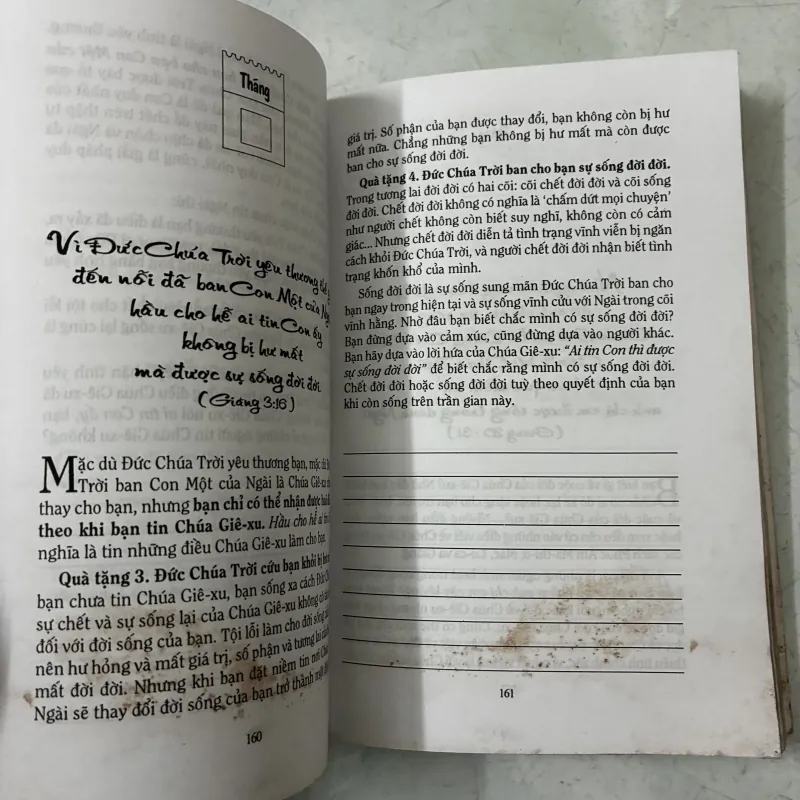 Tháng
Vì Đức Chúa Trời yêu thương thế
đến nỗi đã ban Con Một của
hầu cho hễ ai tin Con ấy
không bị hư mất
mà được sự sống đời đời.
(Giăng 3:16)
Mặc dù Đức Chúa Trời yêu thương bạn, mặc dù
Trời ban Con Một của Ngài là Chúa Giê-xu
thay cho bạn, nhưng bạn chỉ có thể nhận được
theo khi bạn tin Chúa Giê-xu. Hầu cho hễ ai tin
nghĩa là tin những điều Chúa Giê-xu làm cho bạn.
Quà tặng 3. Đức Chúa Trời cứu bạn khỏi bị
bạn chưa tin Chúa Giê-xu, bạn sống xa cách
sự chết và sự sống lại của Chúa Giê-xu không có
đối với đời sống của bạn. Tội lỗi làm cho đời sống
nên hư hỏng và mất giá trị, số phận và tương lai
mất đời đời. Nhưng khi bạn đặt niềm tin nơi
Ngài sẽ thay đổi đời sống của bạn trở thành
160
giá trị. Số phận của bạn được thay đổi, bạn không còn bị hư
mất nữa. Chẳng những bạn không bị hư mất mà còn được
ban cho sự sống đời đời.
Quà tặng 4. Đức Chúa Trời ban cho bạn sự sống đời đời.
Trong tương lai đời đời có hai cõi: cõi chết đời đời và cõi sống
đời đời. Chết đời đời không có nghĩa là ‘chấm dứt mọi chuyện’
như người chết không còn biết suy nghĩ, không còn có cảm
giác... Nhưng chết đời đời diễn tả tình trạng vĩnh viễn bị ngăn
cách khỏi Đức Chúa Trời, và người chết đời đời nhận biết tình
trạng khốn khổ của mình.
Sống đời đời là sự sống sung mãn Đức Chúa Trời ban cho
bạn ngay trong hiện tại và sự sống vĩnh cửu với Ngài trong cõi
vĩnh hằng. Nhờ đâu bạn biết chắc mình có sự sống đời đời?
Bạn đừng dựa vào cảm xúc, cũng đừng dựa vào người khác.
Bạn hãy dựa vào lời hứa của Chúa Giê-xu: “Ai tin Con thì được
sự sống đời đời” để biết chắc rằng mình có sự sống đời đời.
Chết đời đời hoặc sống đời đời tuỳ theo quyết định của bạn
khi còn sống trên trần gian này.
161